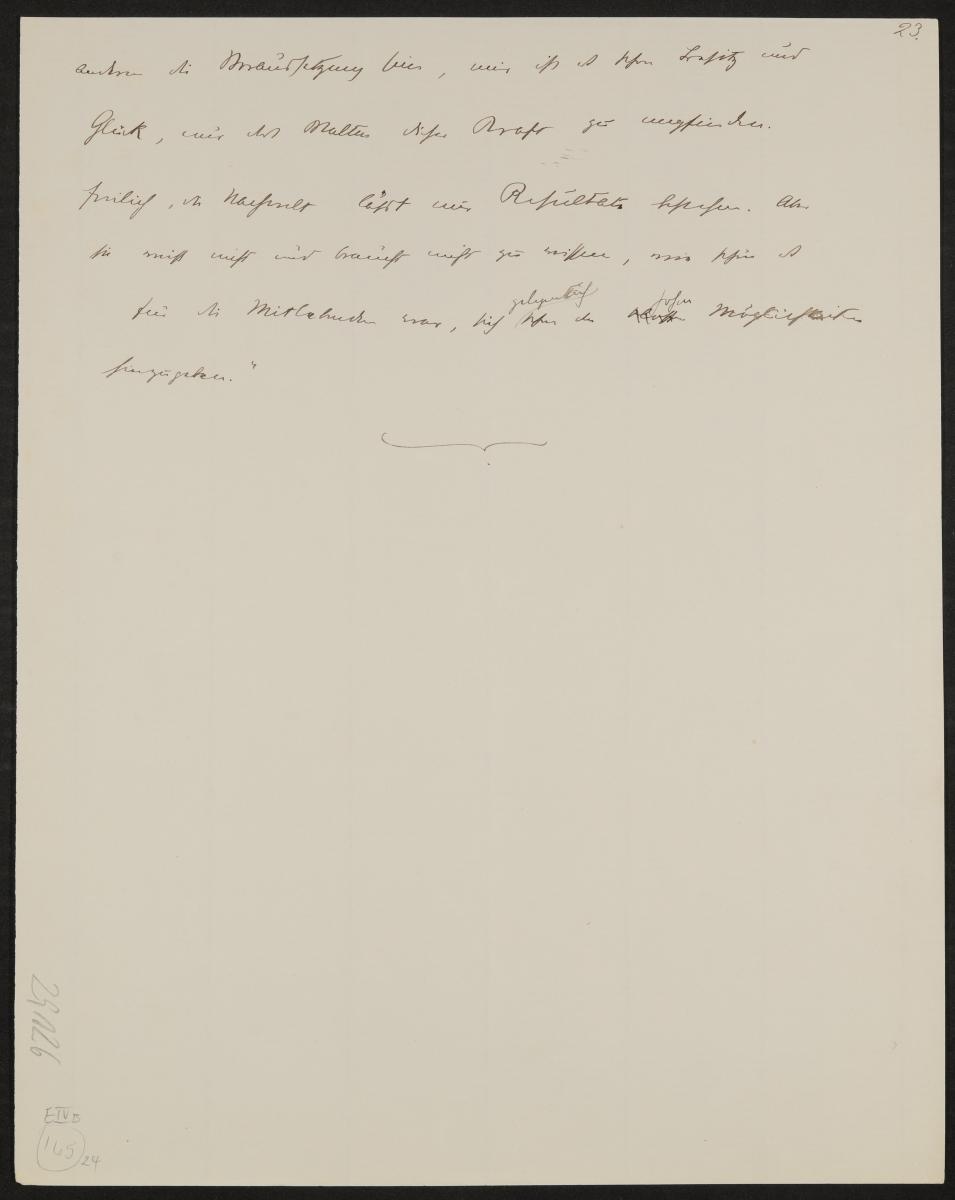 23.
andern die Voraussetzung bin, mir ist es schon Besitz und
Glück, nur das Walten dieser Kraft zu empfinden.
Freilich, die Nachwelt läßt nur Resultate bestehen. Aber
sie weiß nicht und braucht nicht zu wissen, wie schön es
für die Mitlebenden war, sich gelegentlich schon den hohen Möglichkeiten
hinzugeben."
29.N26
E IV B
165
24